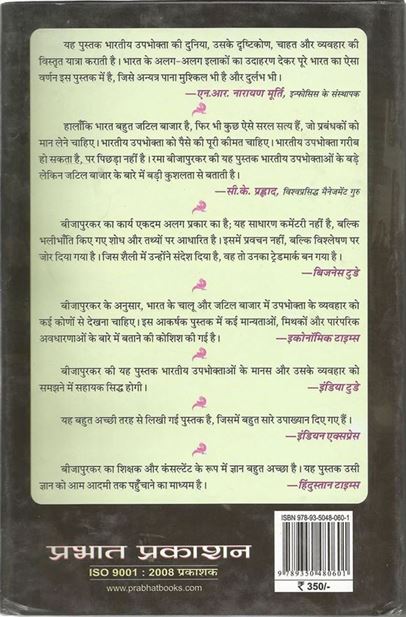 यह पुस्तक भारतीय उपभोक्ता की दुनिया, उसके दृष्टिकोण, चाहत और व्यवहार की
विस्तृत यात्रा कराती है। भारत के अलग-अलग इलाकों का उदाहरण देकर पूरे भारत का ऐसा
वर्णन इस पुस्तक में है, जिसे अन्यत्र पाना मुश्किल भी है और दुर्लभ भी।
—एन.आर. नारायण मूर्ति, इन्फोसिस के संस्थापक
हालाँकि भारत बहुत जटिल बाजार है, फिर भी कुछ ऐसे सरल सत्य हैं, जो प्रबंधकों को
मान लेने चाहिए। भारतीय उपभोक्ता को पैसे की पूरी कीमत चाहिए। भारतीय उपभोक्ता गरीब
हो सकता है, पर पिछड़ा नहीं है। रमा बीजापुरकर की यह पुस्तक भारतीय उपभोक्ताओं के बड़े
लेकिन जटिल बाजार के बारे में बड़ी कुशलता से बताती है।
—सी.के. प्रह्लाद, विश्वप्रसिद्ध मैनेजमेंट गुरु
बीजापुरकर का कार्य एकदम अलग प्रकार का है; यह साधारण कमेंटरी नहीं है, बल्कि
भलीभाँति किए गए शोध और तथ्यों पर आधारित है। इसमें प्रवचन नहीं, बल्कि विश्लेषण पर
जोर दिया गया है। जिस शैली में उन्होंने संदेश दिया है, वह तो उनका ट्रेडमार्क बन गया है।
—बिजनेस टुडे
बीजापुरकर के अनुसार, भारत के चालू और जटिल बाजार में उपभोक्ता के व्यवहार को
कई कोणों से देखना चाहिए। इस आकर्षक पुस्तक में कई मान्यताओं, मिथकों और पारंपरिक
अवधारणाओं के बारे में बताने की कोशिश की गई है। —इकोनॉमिक टाइम्स
बीजापुरकर की यह पुस्तक भारतीय उपभोक्ताओं के मानस और उसके व्यवहार को
समझने में सहायक सिद्ध होगी। —इंडिया टुडे
यह बहुत अच्छी तरह से लिखी गई पुस्तक है, जिसमें बहुत सारे उपाख्यान दिए गए हैं।
—इंडियन एक्सप्रेस
बीजापुरकर का शिक्षक और कंसल्टेंट के रूप में ज्ञान बहुत अच्छा है। यह पुस्तक उसी
ज्ञान को आम आदमी तक पहुँचाने का माध्यम है। —हिंदुस्तान टाइम्स
प्रभात प्रकाशन
ISO 9001 : 2008 प्रकाशक
www.prabhatbooks.com
ISBN 978-93-5048-060-1
9 789350 480601
₹ 350/-